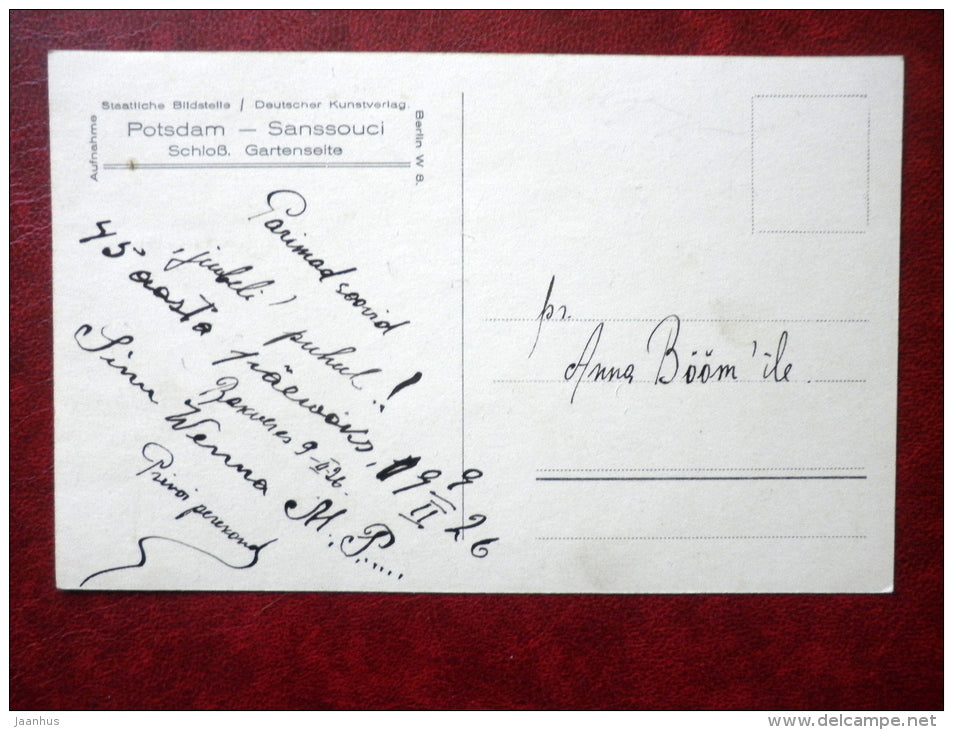 Staatliche Bildstelle / Deutscher Kunstverlag.
Aufnahme
Berlin W 8.
Potsdam — Sanssouci
Schloß. Gartenseite
Parimad soovid
"juubeli" puhul!
45 aasta
9
19 II 26
9-II-26.
Sinu Wenna M. P.....
perekond
pr.
Anna Bööm'ile.
jaanhus
www.delcampe.net